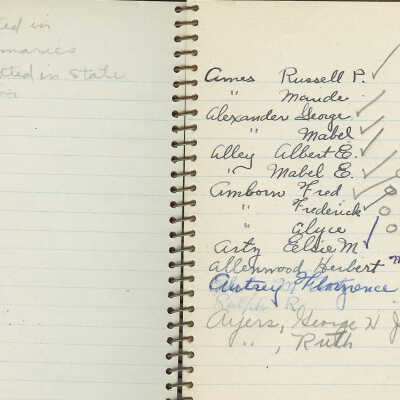 ted in
maries
tted in State
Ames Russell P.
" Maude
Alexander George
" Mabel
Alley Albert E.
" Mabel E.
Amborn Fred
" Frederick
" Alyce
Artz Elsie M
Allenwood Herbert
Florence
Ralph R
Ayers, George W J
", Ruth